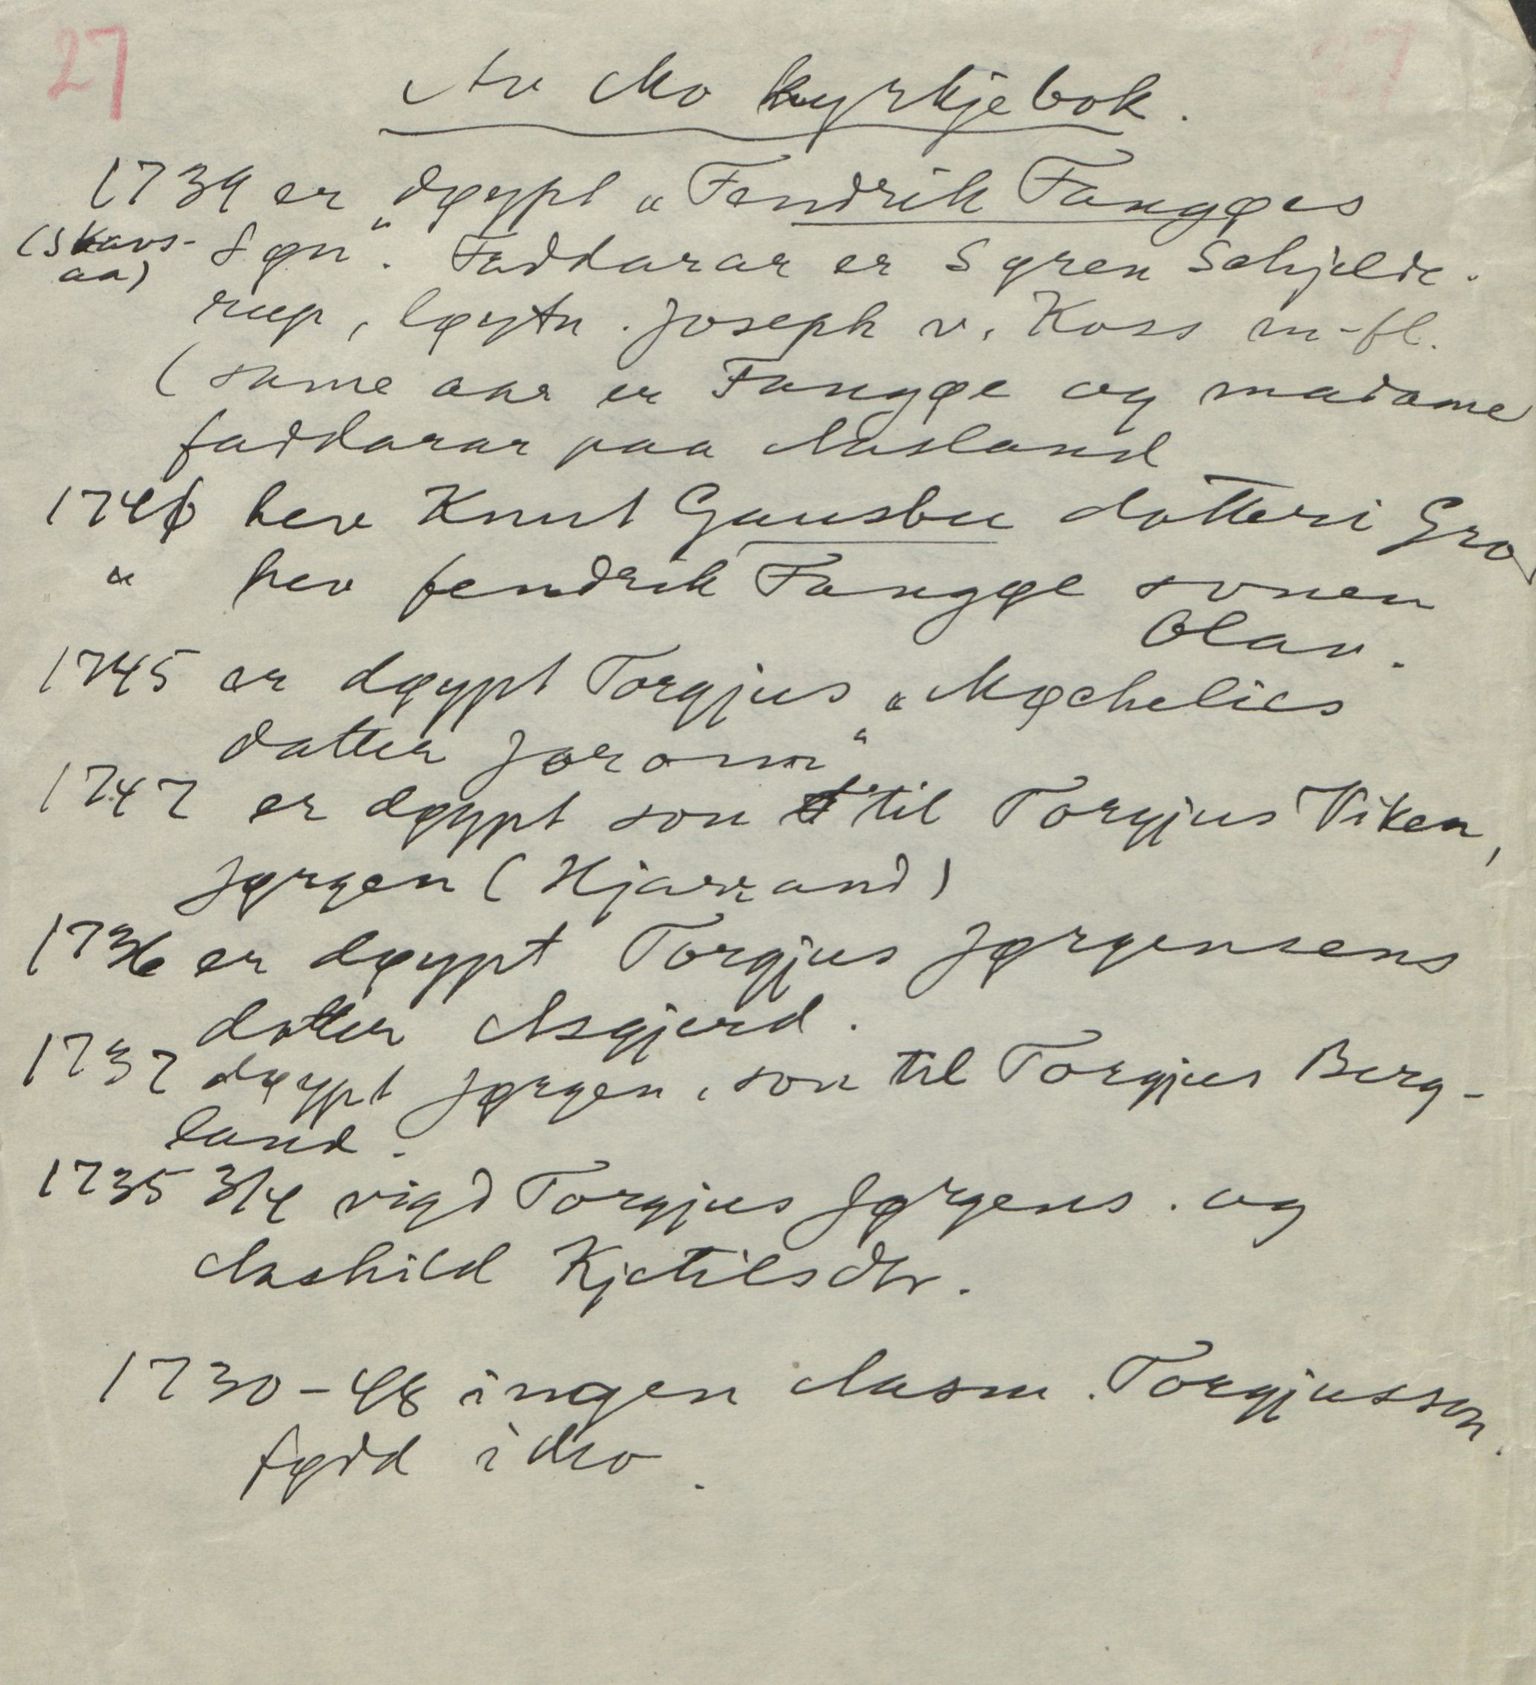 27
Av Mo kyrkjebok.
1739 er døypt „Fendrik Fangøes
(Skavs-
aa)
Søn". Faddarar er Søren Schjelde-
rup, løytn. Joseph v. Koss m-fl.
(same aar er Fangøe og madame
faddarar paa Aasland
1746 hev Knut Gausbu dotteri Gro
" hev fendrik Fangøe sonen
Olav.
1745 er døypt Torgjus „Møchelies
datter Joronn"
1747 er døypt son til Torgjus Viken,
Jørgen (Hjarrand)
1736 er døypt Torgjus Jørgensens
dotter Asgjerd.
1737 døypt Jørgen, son til Torgjus Berg-
land.
1735 3/4 vigd Torgjus Jørgens. og
Aashild Kjetilsdtr.
1730-48 ingen Aasm. Torgjusson
fødd i Mo.